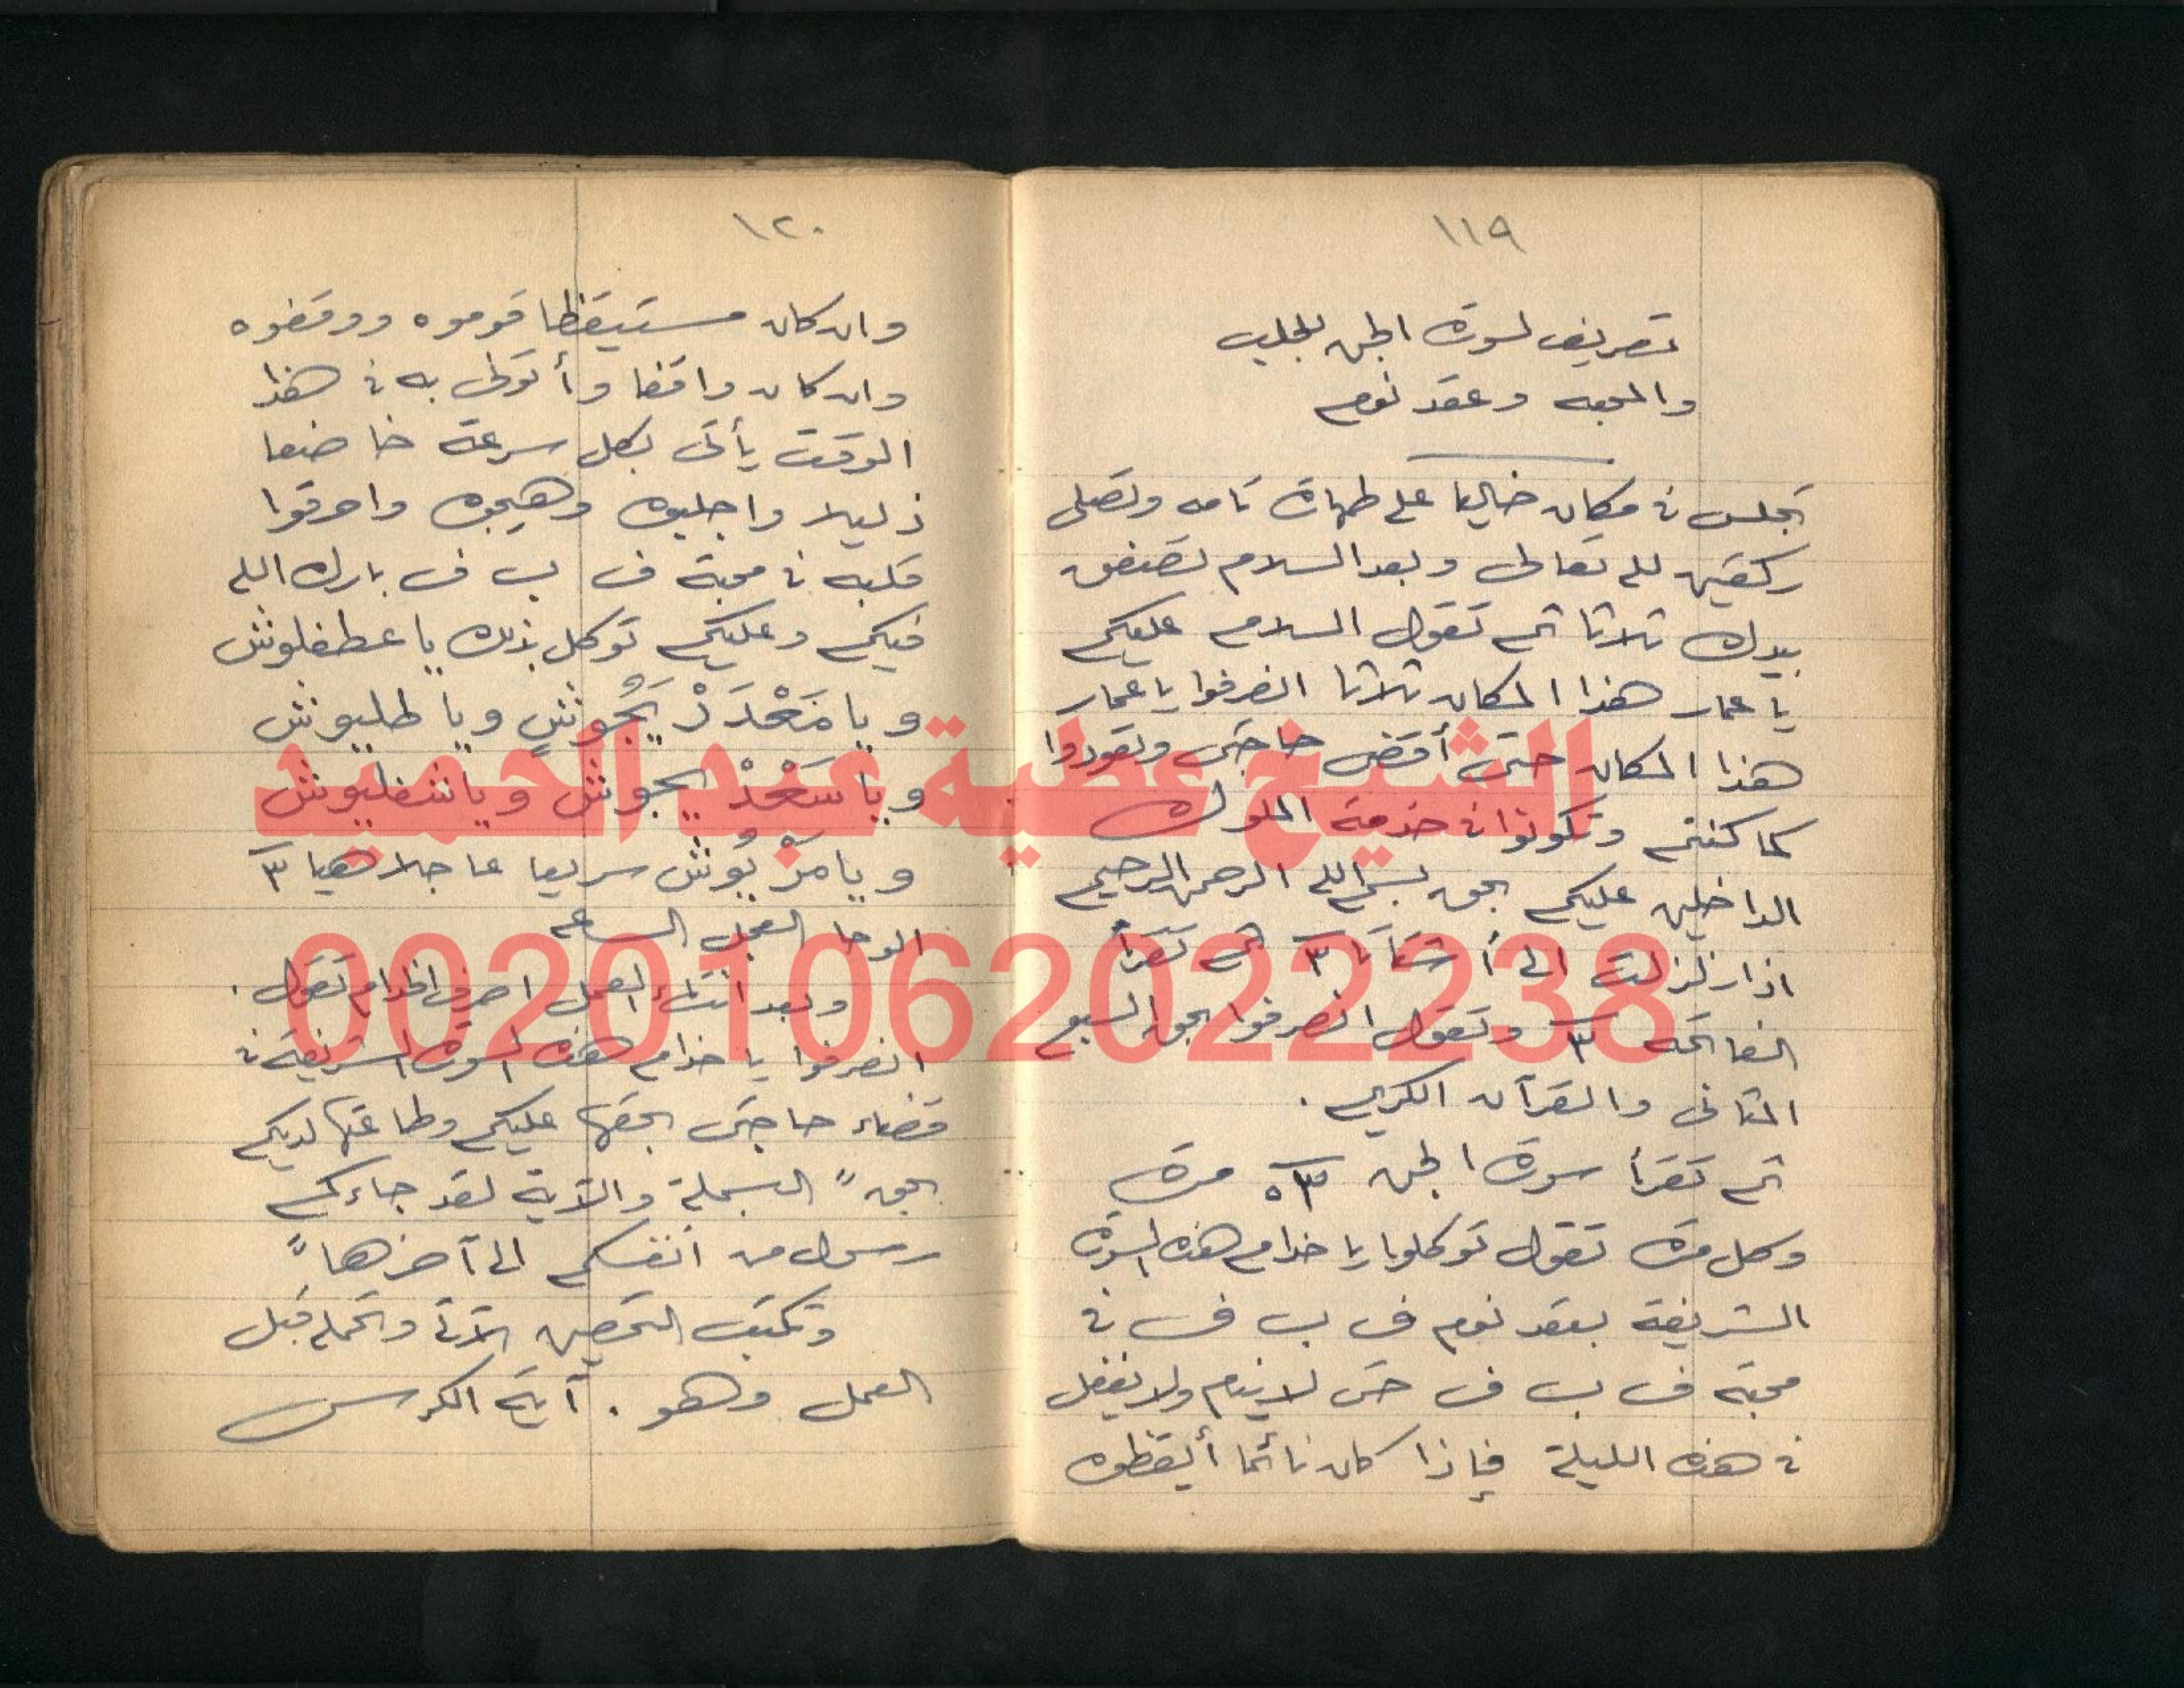 ١١٩
تصريف لسورة الجن للجلب
والمحبه وعقد نوم
تجلس فى مكان خاليا على طهارة تامه وتصلى
ركعتين لله تعالى وبعد السلام تصفق
بيدك ثلاثا ثم تقول السلام عليكم
يا عمار هذا المكان ثلاثا انصرفوا يا عمار
هذا المكان حتى أقضى حاجتى وتعودوا
كما كنتم وتكونوا فى خدمة الملوك
الداخلين عليكم بحق بسم الله الرحمن الرحيم
اذا زلزلت الى أشتاتا ٣ ثم تقرأ
الفاتحه ٣ وتقول انصرفوا بحق السبع
المثانى والقرآن الكريم .
ثم تقرأ سورة الجن مرة
وكل مرة تقول توكلوا يا خدام هذه السورة
الشريفة بعقد نوم ف ب ف فى
محبة ف ب ف حتى لا ينام ولا يغفل
فى هذه الليلة فإذا كان نائما أيقظوه
١٢٠
وان كان مستيقظا قوموه ووقفوه
وان كان واقفا وأتوكى به فى هذا
الوقت يأتى بكل سرعة خاضعا
ذليلا واجلبوه وهيجوه واحرقوا
قلبه فى محبة ف ب ف بارك الله
فيكم وعليكم توكل بذلك يا عطفلوش
ويا ويا طليوش
ويا ويا شفليوش
ويا سريعا عاجلا هيا ٣
الوحا العجل الساعه
وبعد انتهاء العمل اصرف الخدام تقول .
انصرفوا يا خدام هذه السورة الشريفة فى
قضاء حاجتى بحقها عليكم وطاعتها لديكم
بحق " البسملة والآية لقد جاءكم
رسول من أنفسكم الى آخرها "
وتكتب التحصين الآتى وتحمله قبل
العمل وهو . آية الكرسى
الشيخ عطية عبد الحميد
00201062022238